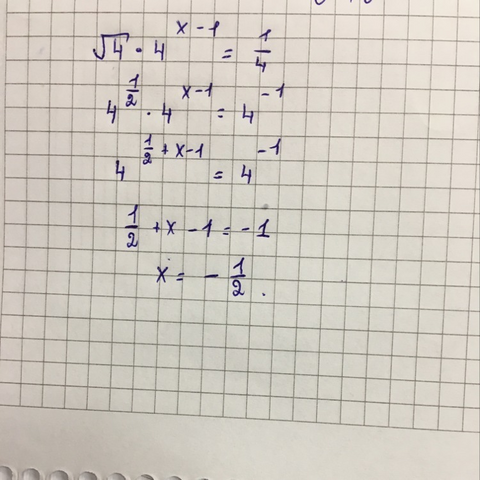 √4 · 4^(x-1) = 1/4
4^(1/2) · 4^(x-1) = 4^(-1)
4^(1/2 + x-1) = 4^(-1)
1/2 + x - 1 = - 1
x = - 1/2 .